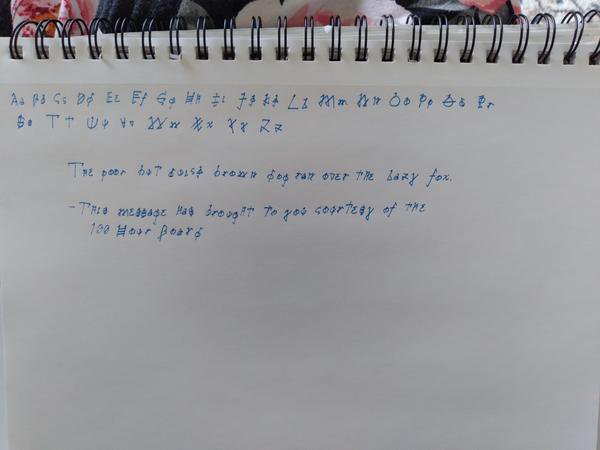 Aa Bb Cc Dd Ee Ff Gg Hh Ii Jj Kk Ll Mm Nn Oo Pp Qq Rr
Ss Tt Uu Vv Ww Xx Yy Zz
The poor but quick brown dog ran over the lazy fox.
-This message was brought to you courtesy of the
100 Hour Board